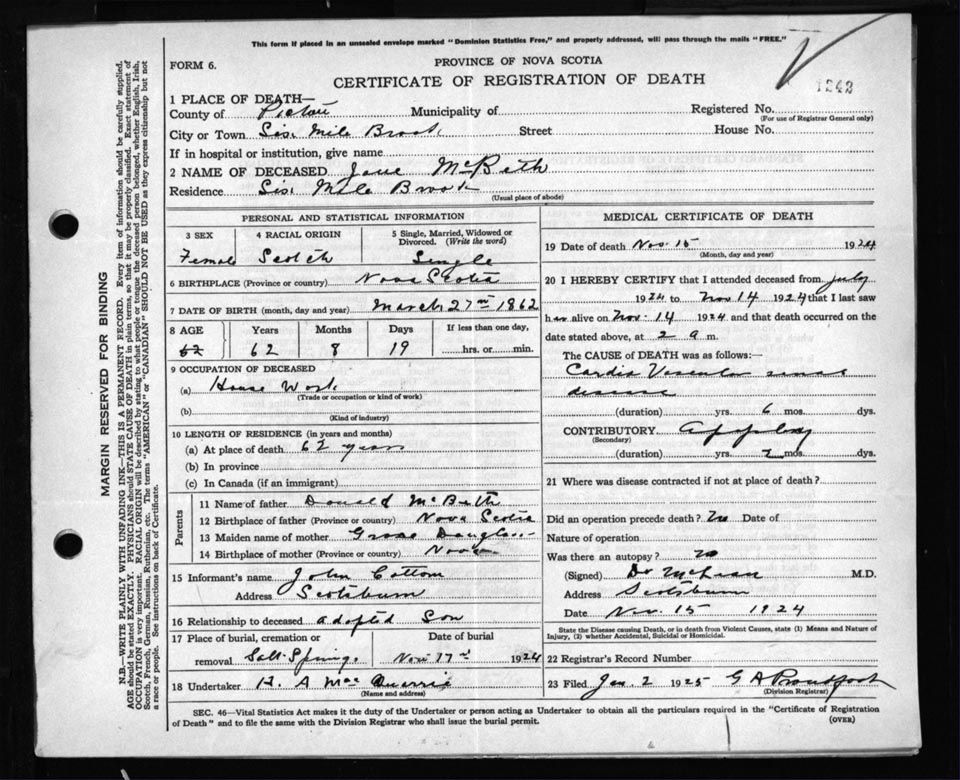 This form if placed in an unsealed envelope marked "Dominion Statistics Free," and properly addressed, will pass through the mails "FREE."
FORM 6.
PROVINCE OF NOVA SCOTIA
CERTIFICATE OF REGISTRATION OF DEATH
1242
1 PLACE OF DEATH—
County of Pictou Municipality of Registered No.
(For use of Registrar General only)
City or Town Six Mile Brook Street House No.
If in hospital or institution, give name
2 NAME OF DECEASED Jane McBeth
Residence Six Mile Brook
(Usual place of abode)
PERSONAL AND STATISTICAL INFORMATION
3 SEX 4 RACIAL ORIGIN 5 Single, Married, Widowed or Divorced. (Write the word)
Female Scotch Single
6 BIRTHPLACE (Province or country) Nova Scotia
7 DATE OF BIRTH (month, day and year) March 27th 1862
8 AGE Years Months Days If less than one day,
62 62 8 19 hrs. or min.
9 OCCUPATION OF DECEASED
(a) House Work
(Trade or occupation or kind of work)
(b)
(Kind of industry)
10 LENGTH OF RESIDENCE (in years and months)
(a) At place of death 62 years
(b) In province
(c) In Canada (if an immigrant)
Parents
11 Name of father Donald McBeth
12 Birthplace of father (Province or country) Nova Scotia
13 Maiden name of mother Douglas
14 Birthplace of mother (Province or country)
15 Informant's name John Cotton
Address Scotsburn
16 Relationship to deceased adopted Son
17 Place of burial, cremation or Date of burial
removal Salt Springs Nov 17th 1924
18 Undertaker H. A MacQuarrie
(Name and address)
MEDICAL CERTIFICATE OF DEATH
19 Date of death Nov. 15 1924
(Month, day and year)
20 I HEREBY CERTIFY that I attended deceased from July
1924 to Nov 14 1924 that I last saw
her alive on Nov. 14 1924 and that death occurred on the
date stated above, at 2 a m.
The CAUSE of DEATH was as follows:—
Cardio Vascular renal
disease
(duration) yrs. 6 mos. dys.
CONTRIBUTORY apoplexy
(Secondary)
(duration) yrs. 2 mos. dys.
21 Where was disease contracted if not at place of death?
Did an operation precede death? No Date of
Nature of operation
Was there an autopsy? no
(Signed) Dr McLean M.D.
Address Scotsburn
Date Nov. 15 1924
State the Disease causing Death, or in death from Violent Causes, state (1) Means and Nature of
Injury, (2) whether Accidental, Suicidal or Homicidal.
22 Registrar's Record Number
23 Filed Jan. 2 1925 G A Proudfoot
(Division Registrar)
SEC. 46—Vital Statistics Act makes it the duty of the Undertaker or person acting as Undertaker to obtain all the particulars required in the "Certificate of Registration
of Death" and to file the same with the Division Registrar who shall issue the burial permit.
(OVER)
MARGIN RESERVED FOR BINDING
N.B.—WRITE PLAINLY WITH UNFADING INK—THIS IS A PERMANENT RECORD. Every item of information should be carefully supplied.
AGE should be stated EXACTLY. PHYSICIANS should STATE CAUSE OF DEATH in plain terms, so that it may be properly classified. Exact statement of
OCCUPATION is very important. RACIAL ORIGIN will be described by stating to what people or tongue the deceased person belonged, whether English, Irish,
Scotch, French, German, Russian, Ruthenian, etc. The terms "AMERICAN" or "CANADIAN" SHOULD NOT BE USED as they express citizenship but not
a race or people. See instructions on back of Certificate.